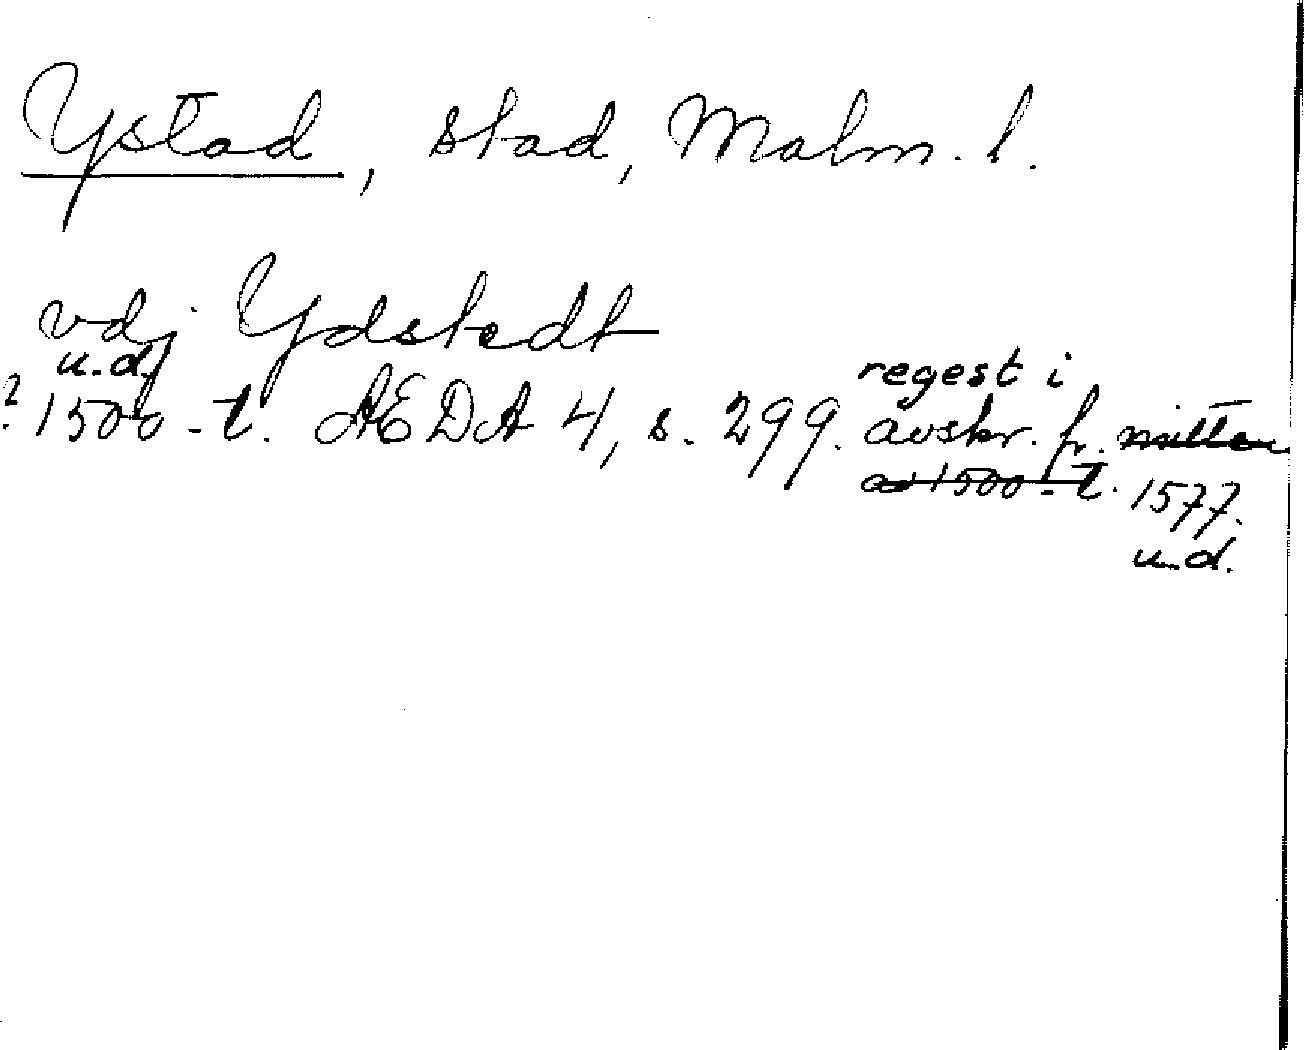 Ystad, stad, Malm. l.
vdj Ydstedt
u.d.
regest i
? 1500-t. AEDA 4, s. 299. avskr. fr. mitten
av 1500-t. 1577.
u.d.